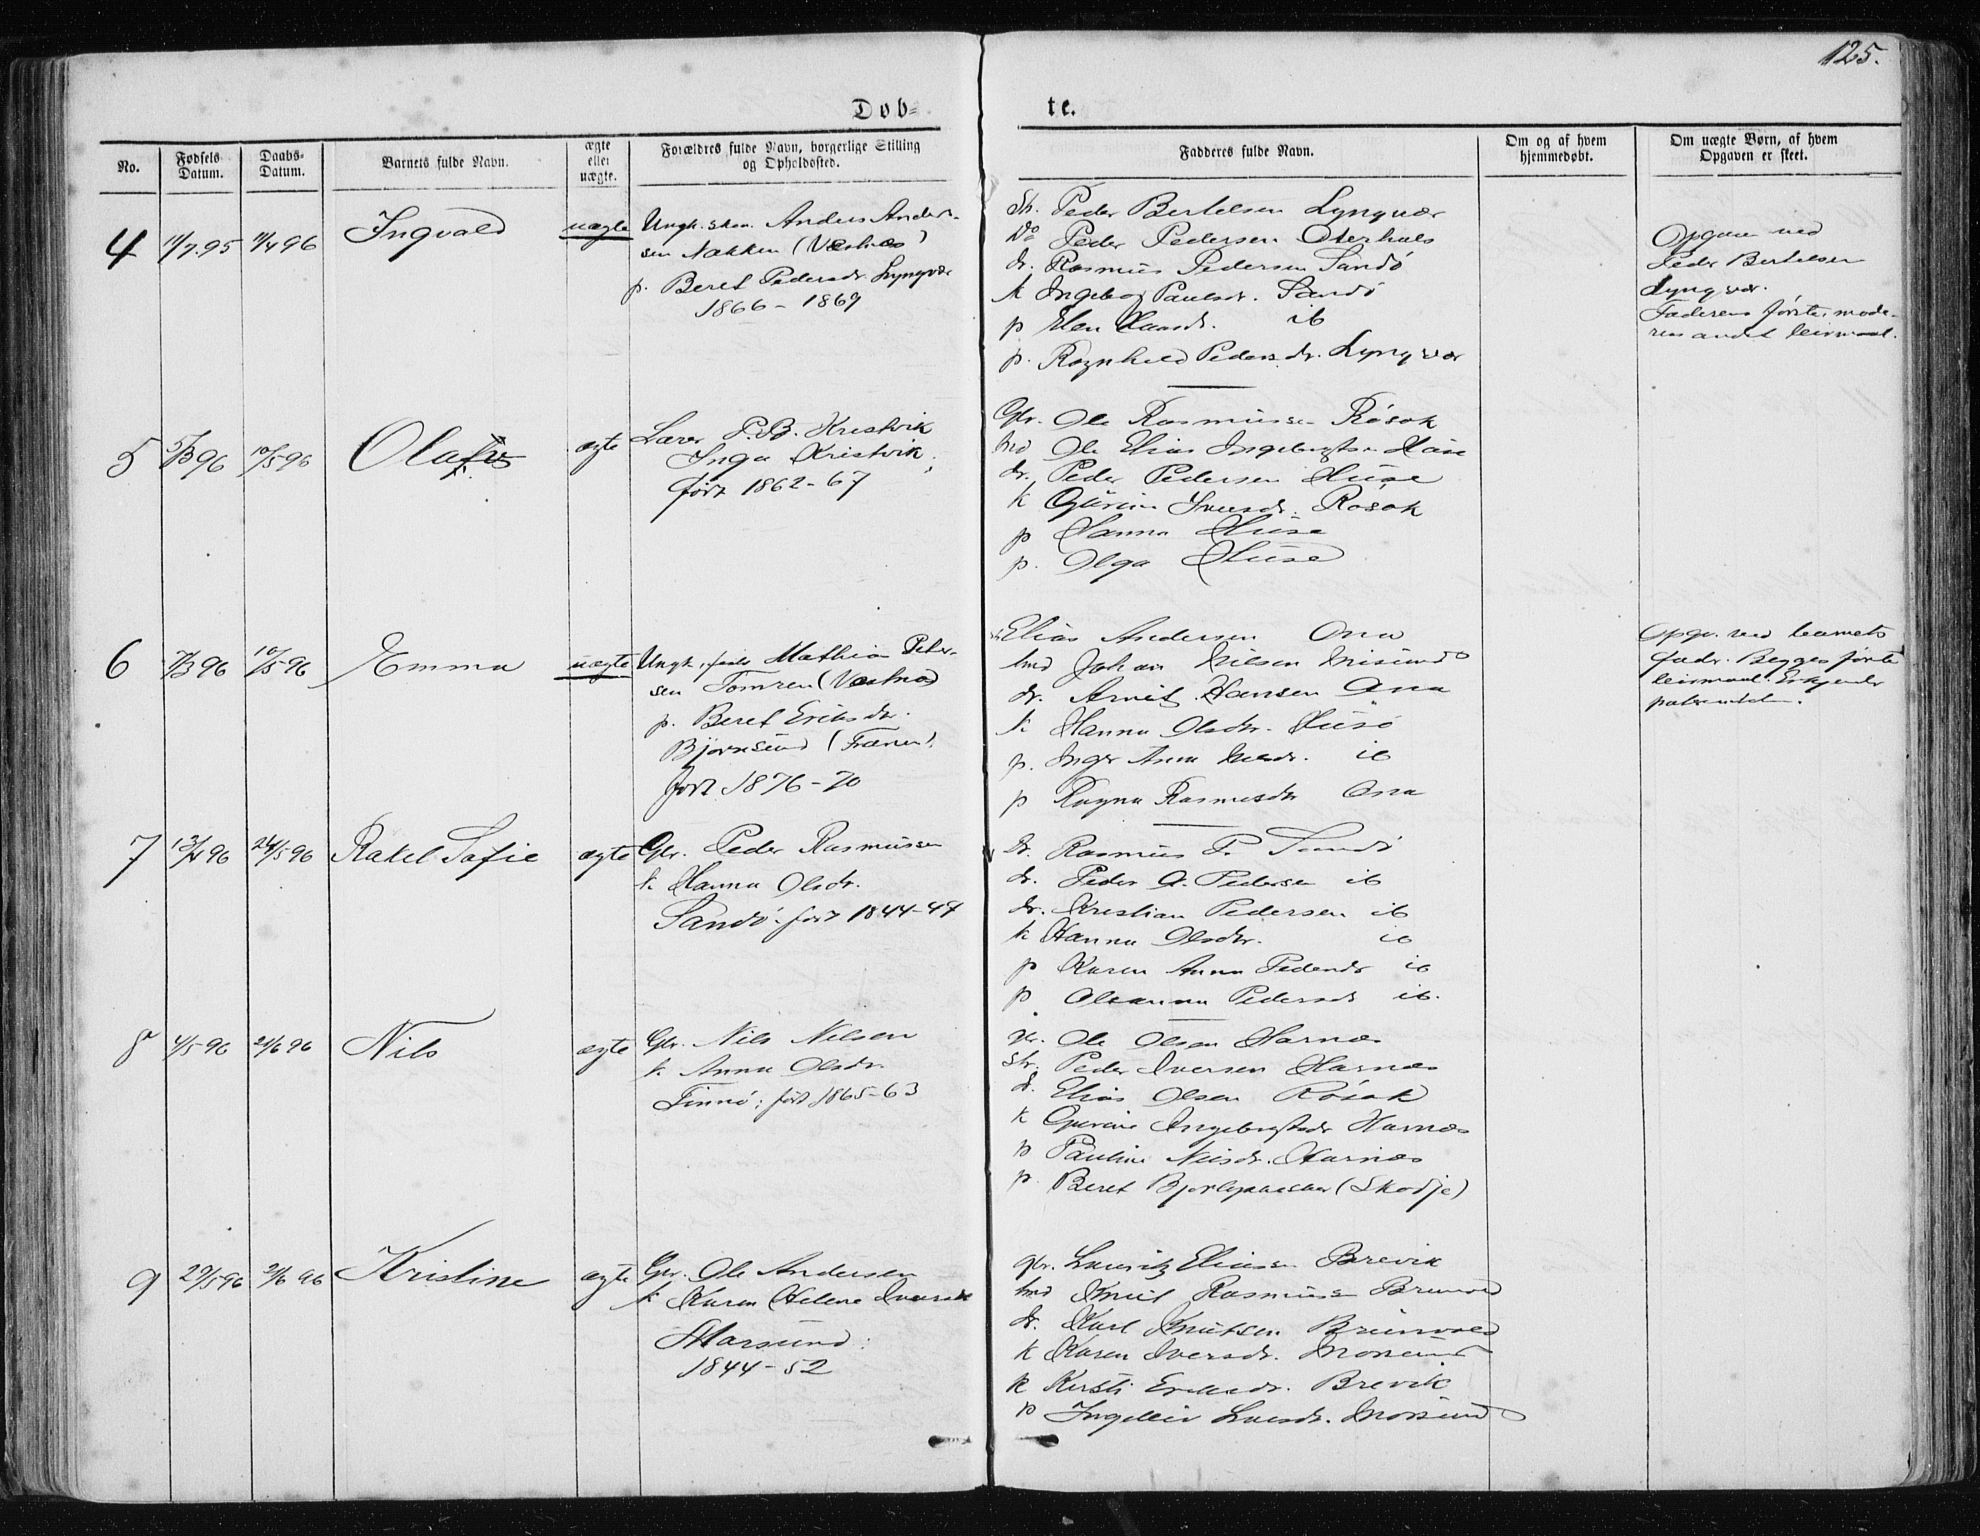 125.
Døb-
te.
No.
Fødsels Datum.
Daabs- Datum.
Barnets fulde Navn.
ægte eller uægte.
Forældres fulde Navn, borgerlige Stilling og Opholdssted.
Fadderes fulde Navn.
Om og af hvem hjemmedøbt.
Om uægte Børn, af hvem Opgaven er skeet.
4
11/7.95
11/4 96
Ingvald
uægte
Ungk. Anders Ander-
sen Nakken (Vestnes)
p. Beret Pedersdr. Lyngvær
1866 - 1869
Peder Bertelsen Lyngvær
Do Peder Pedersen Oterhals
dr. Rasmus Pedersen Sandø
k Ingeborg Paulsdr. Sandø
p Elen Hansdr. ib
p. Ragnhild Pedersdr. Lyngvær
Opgave ved
Peder Bertelsen
Lyngvær.
Faderens første, mode-
rens andet leirmaal.
5
5/3 96
10/5 96
Olaf
ægte
Lærer P. B. Kristvik
Inga Kristvik,
født 1862-67
Gbr. Ole Rasmussen Røsok
Ind Ole Elias Ingebrigtsen
dr. Peder Pedersen Huse
k Gurine Iversdr. Røsok
p Hanna Huse
p. Olga Huse
6
7/3 96
10/5 96
Emma
uægte
Ungk. Mathias Peter-
sen Tomren (Vestnes)
p. Beret Eriksdr.
Bjørnsund (Frænen).
født 1876-70
Elias Andersen Ona
Ind Johan Nilsen Misund
dr. Arnt Hansen Ona
k Hanna Olsdr. Husø
p. Inger Anna ib
p Ragna Rasmusdr Ona
Opgv. ved barnets
fader. Begges første
leirmaal. Erkjender
7
13/4 96
24/5 96
Rakel Sofie
ægte
Gbr. Peder Rasmussen
k. Hanna Olsdr.
Sandø. født 1844-47
Rasmus P. Sandø
dr. Peder A. Pedersen ib
dr. Kristian Pedersen ib
k Hanna Olsdr. ib
p Karen Anna Pedersdr ib
p Oleanna Pedersdr ib.
8
4/5 96
21/6 96
Nils
ægte
Gbr. Nils Nilsen
k. Anna Olsdr.
Finnø: født 1865-63
Gbr. Ole Olsen Harnæs
Str. Peder Iversen Harnæs
dr. Elias Olsen Røsok
k Gurine Ingebrigtsdr Harnæs
p Pauline Nilsdr. Harnæs
p. Beret (Skodje)
9
29/5 96
21/6 96
Kristine
ægte
Gbr. Ole Andersen
k Karen Helene Iversdr
Marsund:
1844-52
gbr. Lauritz Eliassen Brevik
Ind Knut Rasmussen Brunvold
dr. Karl Knutsen Brunvold
k Karen Iversdr. Morsund
k Kirsti Eriksdr. Brevik
p Ingeleiv Larsdr. Morsund